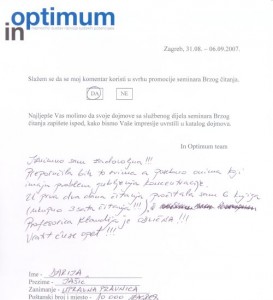 in optimum
Zagreb, 31.08. – 06.09.2007.
Slažem se da se moj komentar koristi u svrhu promocije seminara Brzog čitanja.
DA
NE
Najljepše Vas molimo da svoje dojmove sa službenog dijela seminara Brzog
čitanja zapišete ispod, kako bismo Vaše impresije uvrstili u katalog dojmova.
In Optimum team
Iznimno sam zadovoljna!!!
Preporučila bih to svima a posebno onima koji
imaju problem gubljenja koncentracije.
Za prva dva dana čitanja pročitala sam 6 knjiga
(ukupno 3 sata čitanja!!!)
Profesorica je odlična!!!
Vratit ću se opet!!!
Ime - DARIJA
Prezime - JAŠIĆ
Zanimanje - UPRAVNA PRAVNICA
Poštanski broj i mjesto - 10 000 ZAGREB